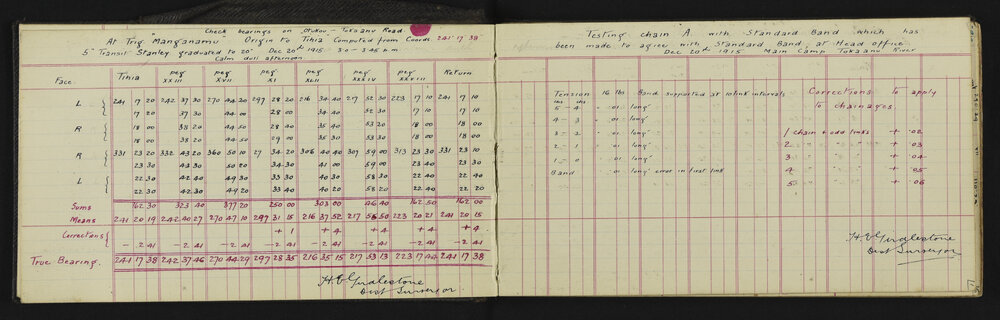 Check bearings on Otukou - Tokaanu Road
At Trig "Manganamu" Origin to Tihia Computed from Coords 241° 17 38
5" Transit Stanley graduated to 20" Dec 20th 1915 3.0 - 3.45 p.m.
Calm dull afternoon
Face Tihia peg XXIII peg XVII peg XI peg XLII peg XXXIV peg XXVIII Return
L 241 17 20 242 37 30 270 44 20 297 28 20 216 34 40 217 52 30 223 17 10 241 17 10
17 20 37 30 44 00 28 00 34 40 52 30 17 10 17 10
R 18 00 38 20 44 50 28 40 35 40 53 20 18 00 18 00
18 00 38 20 44 50 29 00 35 30 53 30 18 00 18 00
R 331 23 20 332 43 20 360 50 10 27 34 20 306 40 40 307 59 00 313 23 30 331 23 10
23 30 43 30 50 20 34 30 41 00 59 00 23 40 23 30
L 22 30 42 40 49 30 33 50 40 30 58 20 22 40 22 40
22 30 42 30 49 20 33 40 40 20 58 20 22 40 22 20
Sums 162 30 323 40 377 20 250 00 303 00 46 40 162 50 162 00
Means 241 20 19 242 40 27 270 47 10 297 31 15 216 37 52 217 50 223 20 21 241 20 15
Corrections + 1 + 4 + 4 + 4 + 4
- 2 41 - 2 41 - 2 41 - 2 41 - 2 41 - 2 41 - 2 41 - 2 41
True Bearing. 241 17 38 242 37 46 270 44 29 297 28 35 216 35 15 217 53 13 223 17 44 241 17 38
H. E. Girdlestone
Dist Surveyor
Testing chain A with Standard Band which has
been made to agree with Standard Band, at Head office
Dec 20th 1915 Main Camp Tokaanu River
Tension 16 lbs Band supported at 10 link intervals Corrections to apply
lbs lbs to chainages
5 - 4 " .01 long
4 - 3 " .01 long
3 - 2 " .01 long 1 chain + odd links + .02
2 - 1 " .01 long 2 " + .03
1 - 0 " .01 long 3 " + .04
Band .01 long error in first link 4 " + .05
5 " + .06
H. E. Girdlestone
Dist Surveyor